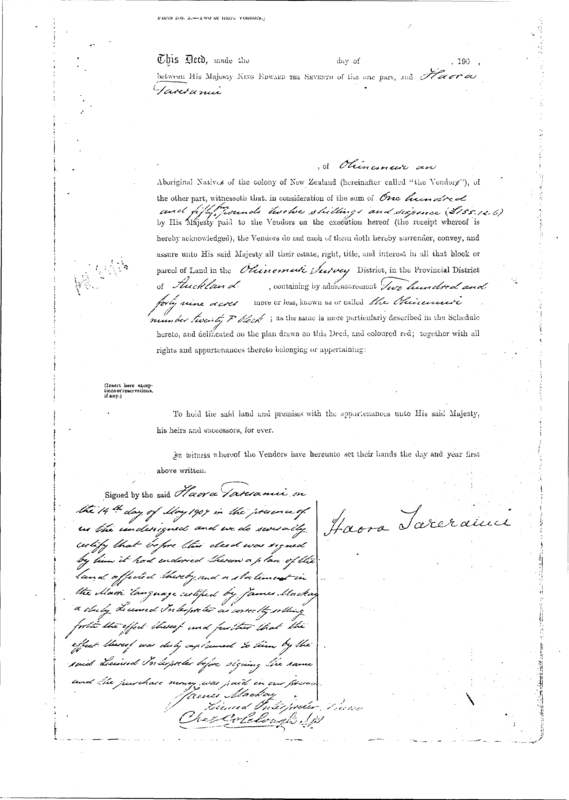 This Deed, made the day of , 190 ,
between His Majesty KING EDWARD THE SEVENTH of the one part, and Haora
Tareranui
, of Ohinemuri an
Aboriginal Natives of the colony of New Zealand (hereinafter called "the Vendors"), of
the other part, witnesseth that, in consideration of the sum of One hundred
and fifty pounds twelve shillings and sixpence (£155.12.6)
by His Majesty paid to the Vendors on the execution hereof (the receipt whereof is
hereby acknowledged), the Vendors do and each of them doth hereby surrender, convey, and
assure unto His said Majesty all their estate, right, title, and interest in all that block or
parcel of Land in the Ohinemuri Survey District, in the Provincial District
of Auckland , containing by admeasurement Two hundred and
forty nine acres more or less, known as or called the Ohinemuri
number twenty F block ; as the same is more particularly described in the Schedule
hereto, and delineated on the plan drawn on this Deed, and coloured red; together with all
rights and appurtenances thereto belonging or appertaining:
(Insert here excep-
tions or reservations,
if any.)
To hold the said land and premises with the appurtenances unto His said Majesty,
his heirs and successors, for ever.
In witness whereof the Vendors have hereunto set their hands the day and year first
above written.
Signed by the said Haora Tareranui on
the 14th day of May 1907 in the presence of
us the undersigned and we do severally
certify that before this deed was signed
by him it had endorsed thereon a plan of the
land affected thereby and a statement in
the Maori language certified by James Mackay
a duly Licensed Interpreter as correctly setting
forth the effect thereof and further that the
effect thereof was duly explained to him by the
said Licensed Interpreter before signing the same
and the purchase money was paid in our presence
Haora Tareranui
James Mackay
Licensed Interpreter,